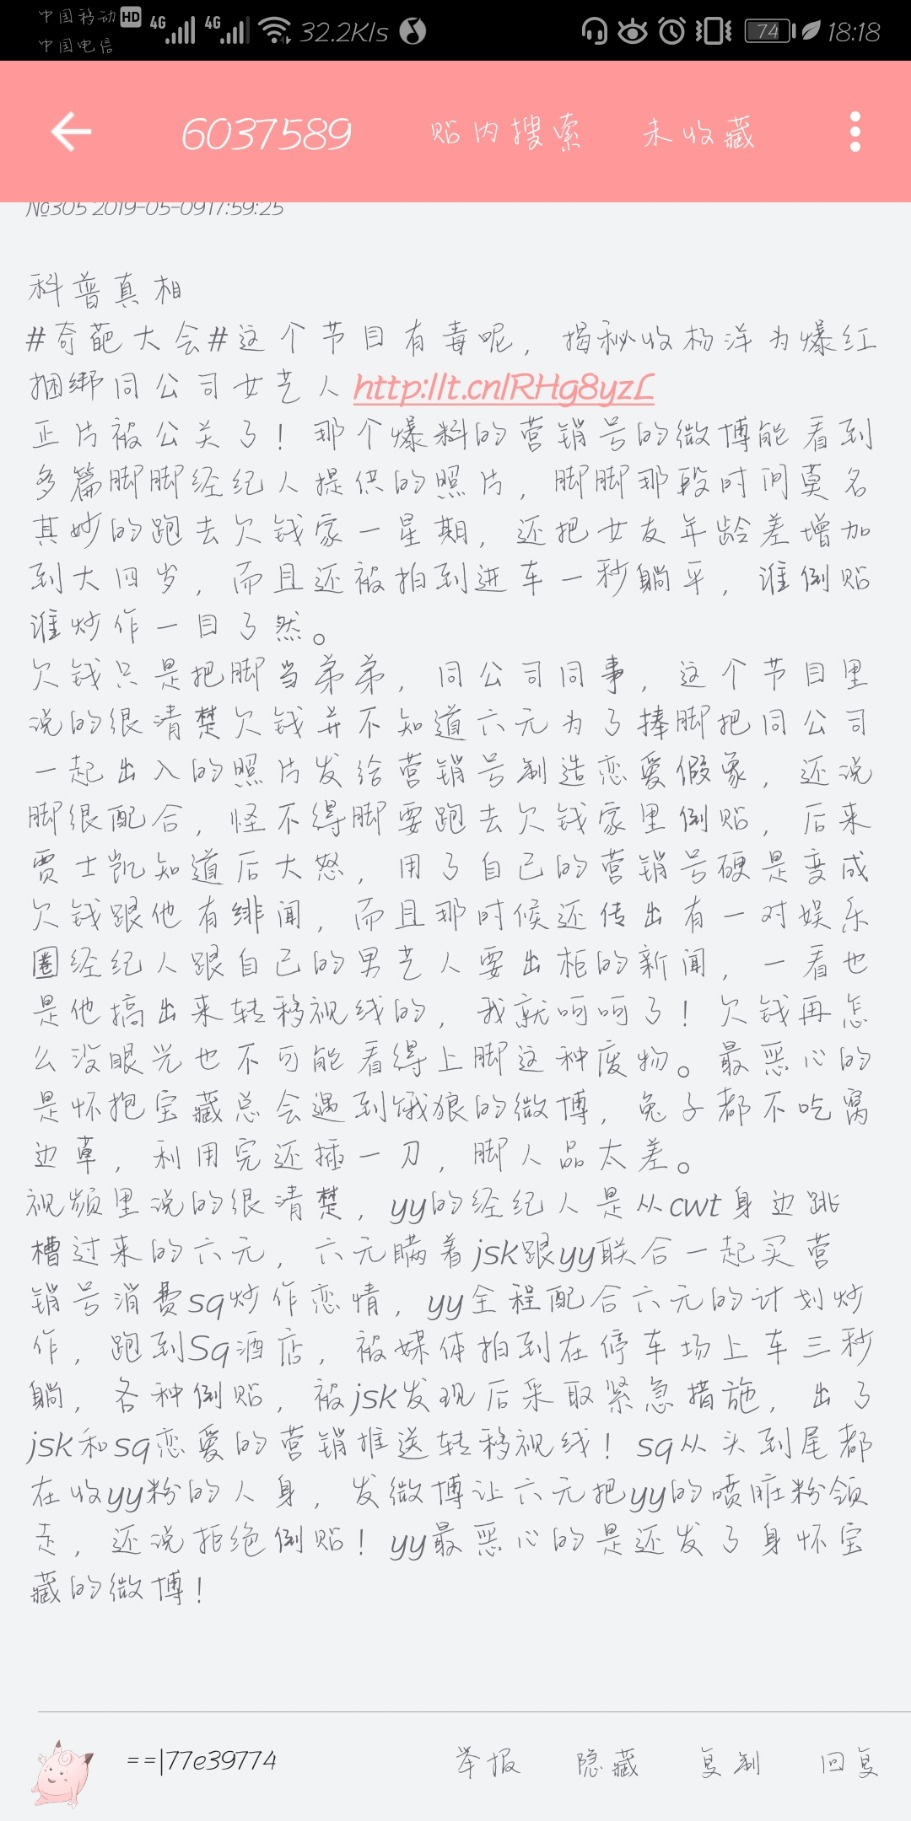 中国移动HD 4G 4G 32.2K/s 74 18:18
中国电信
6037589 贴内搜索 未收藏
№305 2019-05-0917:59:25
科普真相
#奇葩大会#这个节目有毒呢，揭秘收杨洋为爆红
捆绑同公司女艺人http://t.cn/RHg8yzL
正片被公关了！那个爆料的营销号的微博能看到
多篇脚脚经纪人提供的照片，脚脚那段时间莫名
其妙的跑去欠钱家一星期，还把女友年龄差增加
到大四岁，而且还被拍到进车一秒躺平，谁倒贴
谁炒作一目了然。
欠钱只是把脚当弟弟，同公司同事，这个节目里
说的很清楚欠钱并不知道六元为了捧脚把同公司
一起出入的照片发给营销号制造恋爱假象，还说
脚很配合，怪不得脚要跑去欠钱家里倒贴，后来
贾士凯知道后大怒，用了自己的营销号硬是变成
欠钱跟他有绯闻，而且那时候还传出有一对娱乐
圈经纪人跟自己的男艺人要出柜的新闻，一看也
是他搞出来转移视线的，我就呵呵了！欠钱再怎
么没眼光也不可能看得上脚这种废物。最恶心的
是怀抱宝藏总会遇到饿狼的微博，兔子都不吃窝
边草，利用完还插一刀，脚人品太差。
视频里说的很清楚，yy的经纪人是从cwt身边跳
槽过来的六元，六元瞒着jsk跟yy联合一起买营
销号消费sq炒作恋情，yy全程配合六元的计划炒
作，跑到Sq酒店，被媒体拍到在停车场上车三秒
躺，各种倒贴，被jsk发现后采取紧急措施，出了
jsk和sq恋爱的营销推送转移视线！sq从头到尾都
在收yy粉的人身，发微博让六元把yy的喷脏粉领
走，还说拒绝倒贴！yy最恶心的是还发了身怀宝
藏的微博！
==|77e39774 举报 隐藏 复制 回复